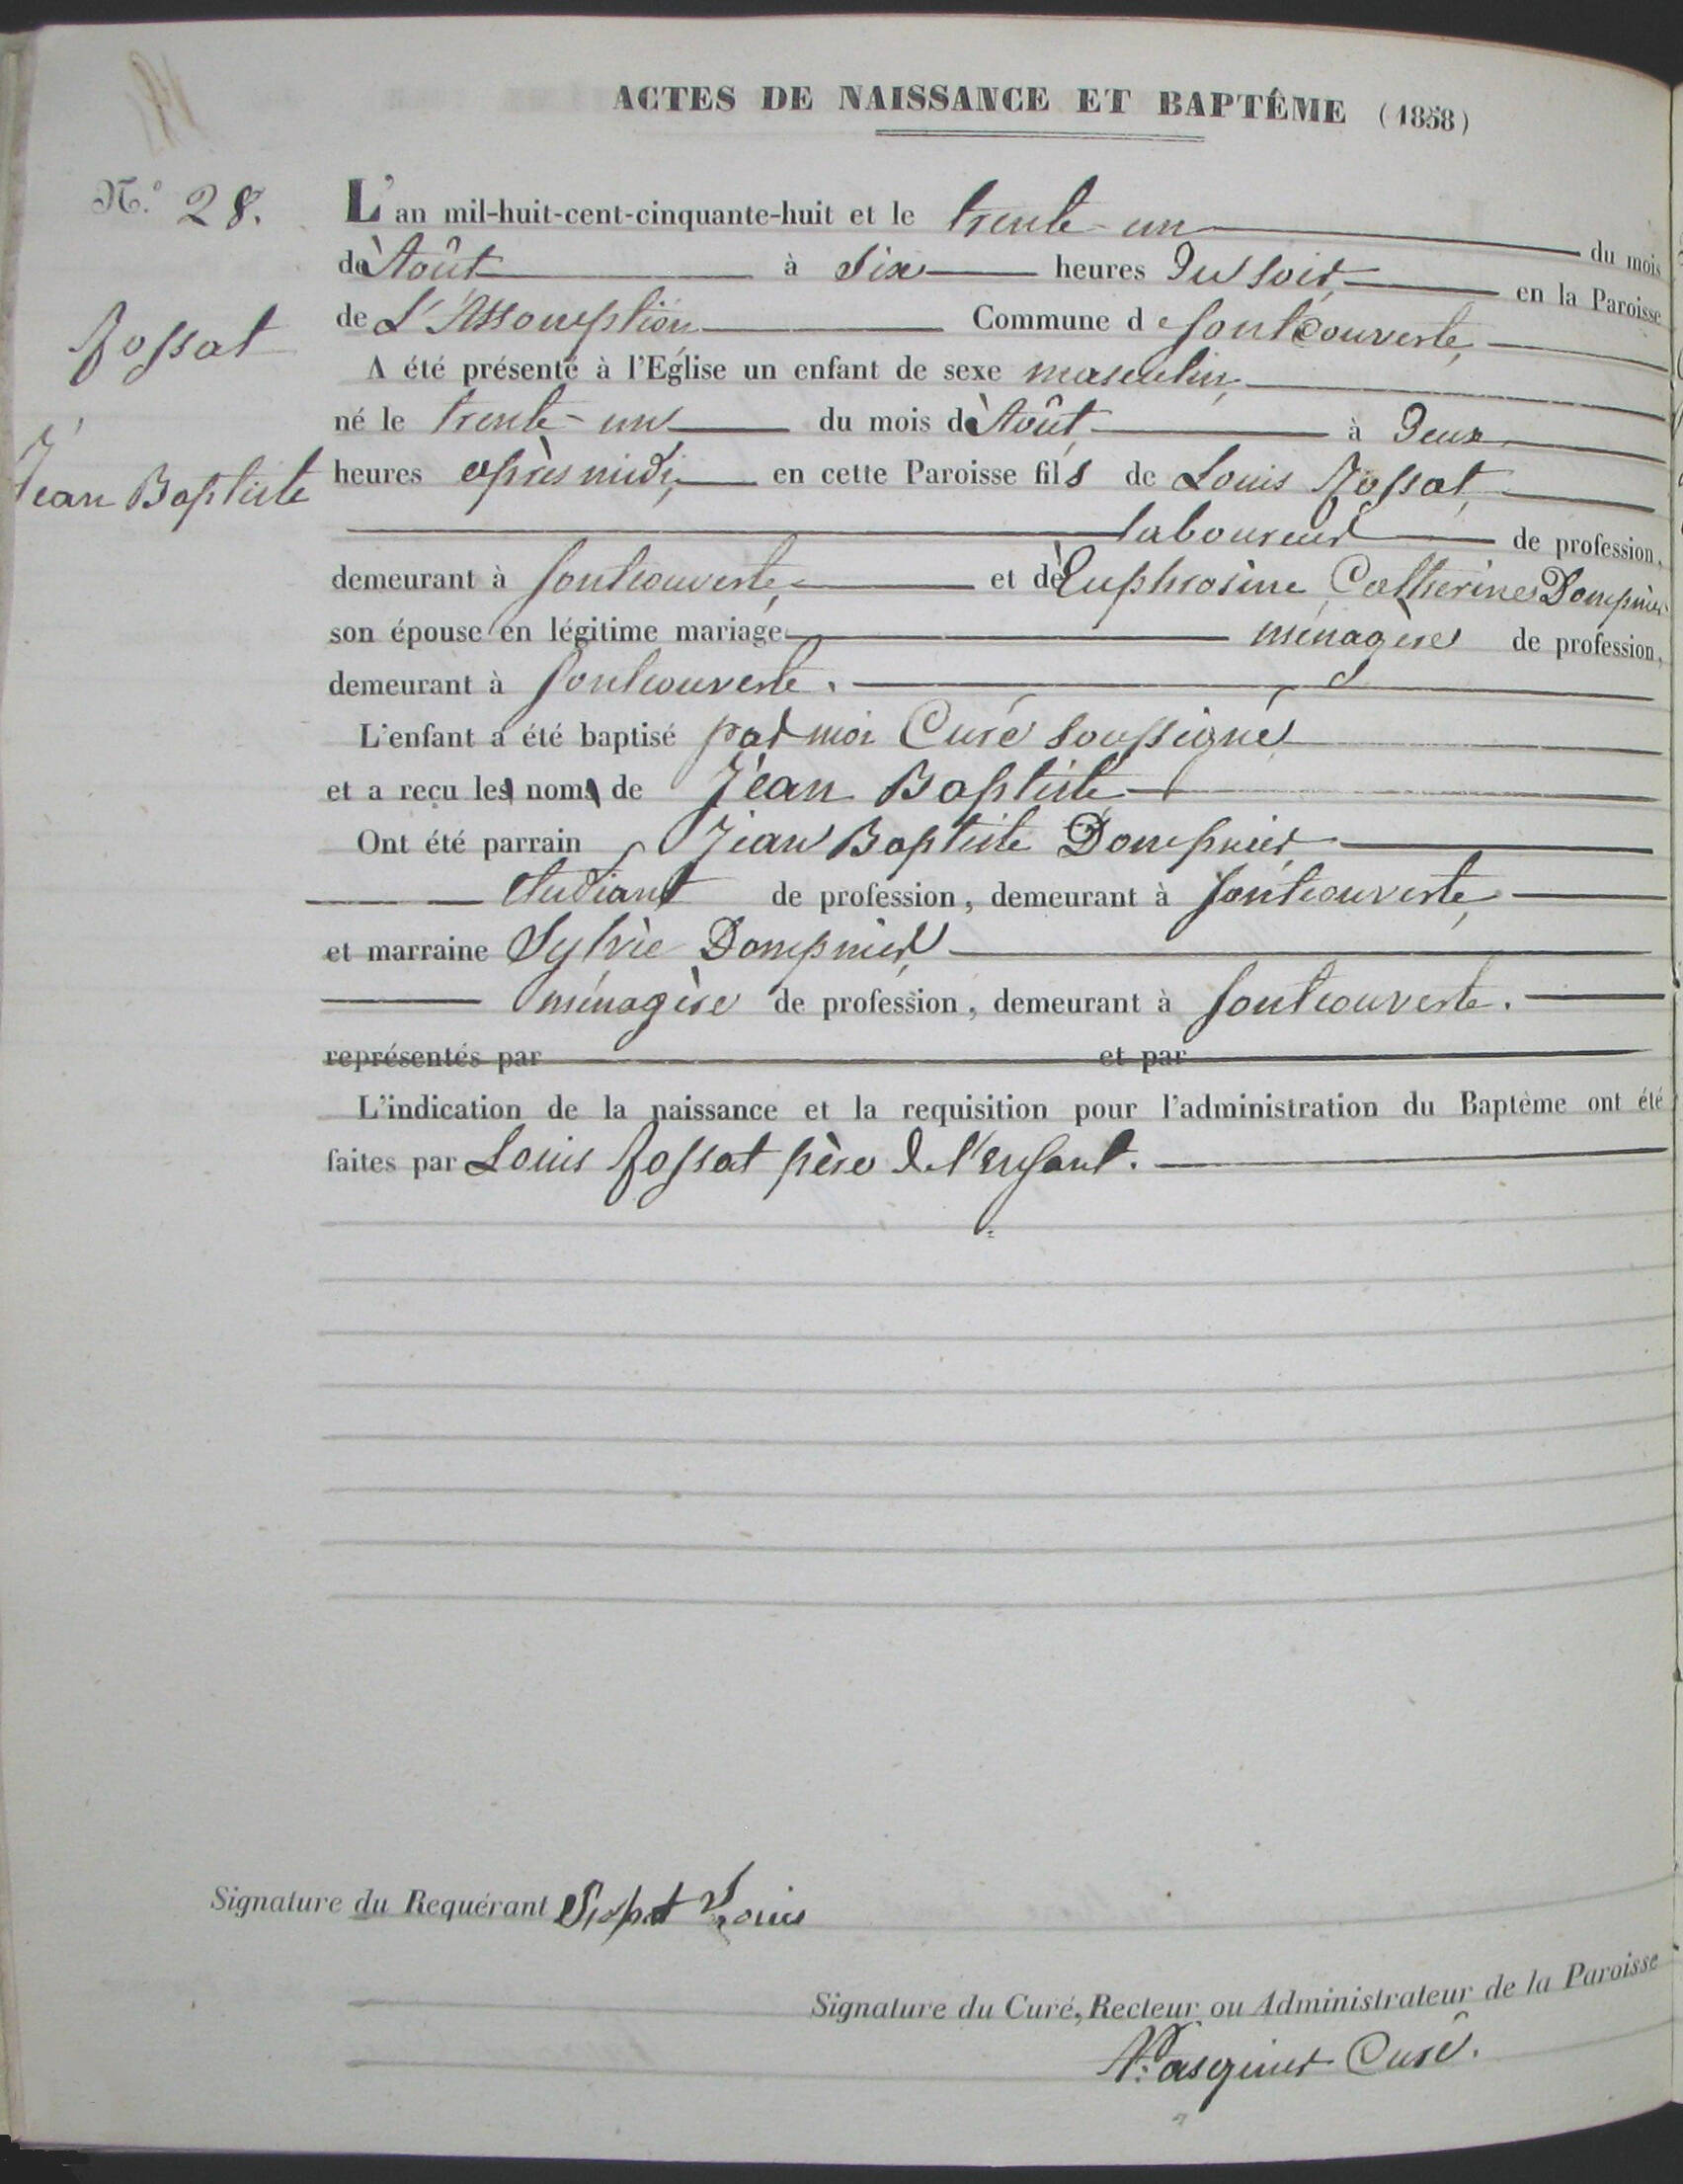 ACTES DE NAISSANCE ET BAPTÊME (1858)
N.º 28.
L'an mil-huit-cent-cinquante-huit et le trente-un du mois
d'Août à Six heures du soir, en la Paroisse
de L'Assomption Commune de fontcouverte,
A été présenté à l'Eglise un enfant de sexe masculin,
né le trente-un du mois d'Août, à deux
heures après midi, en cette Paroisse fils de Louis Rossat,
laboureur de profession,
demeurant à fontcouverte, et d'Euphrosine Catherine Dompnier
son épouse en légitime mariage ménagère de profession,
demeurant à fontcouverte.
L'enfant a été baptisé par moi Curé soussigné
et a reçu les noms de Jean Baptiste
Ont été parrain Jean Baptiste Dompnier
étudiant de profession, demeurant à fontcouverte,
et marraine Sylvie Dompnier,
ménagère de profession, demeurant à fontcouverte.
représentés par et par
L'indication de la naissance et la requisition pour l'administration du Baptême ont été
faites par Louis Rossat père de l'enfant.
Rossat
Jean Baptiste
Signature du Requérant Louis
Signature du Curé, Recteur ou Administrateur de la Paroisse
Curé.